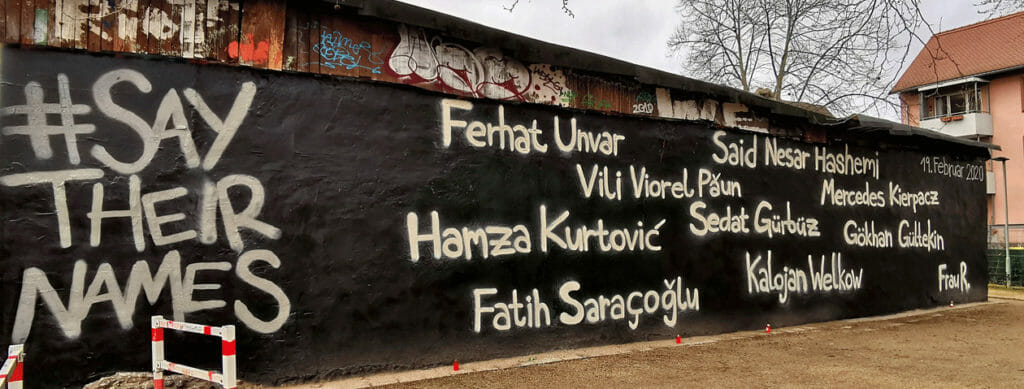 #SAY
THEIR
NAMES
Ferhat Unvar
Said Nesar Hashemi
19. Februar 2020
Vili Viorel Păun
Mercedes Kierpacz
Hamza Kurtović
Sedat Gürbüz
Gökhan Gültekin
Fatih Saraçoğlu
Kalojan Welkow
Frau R.
2019